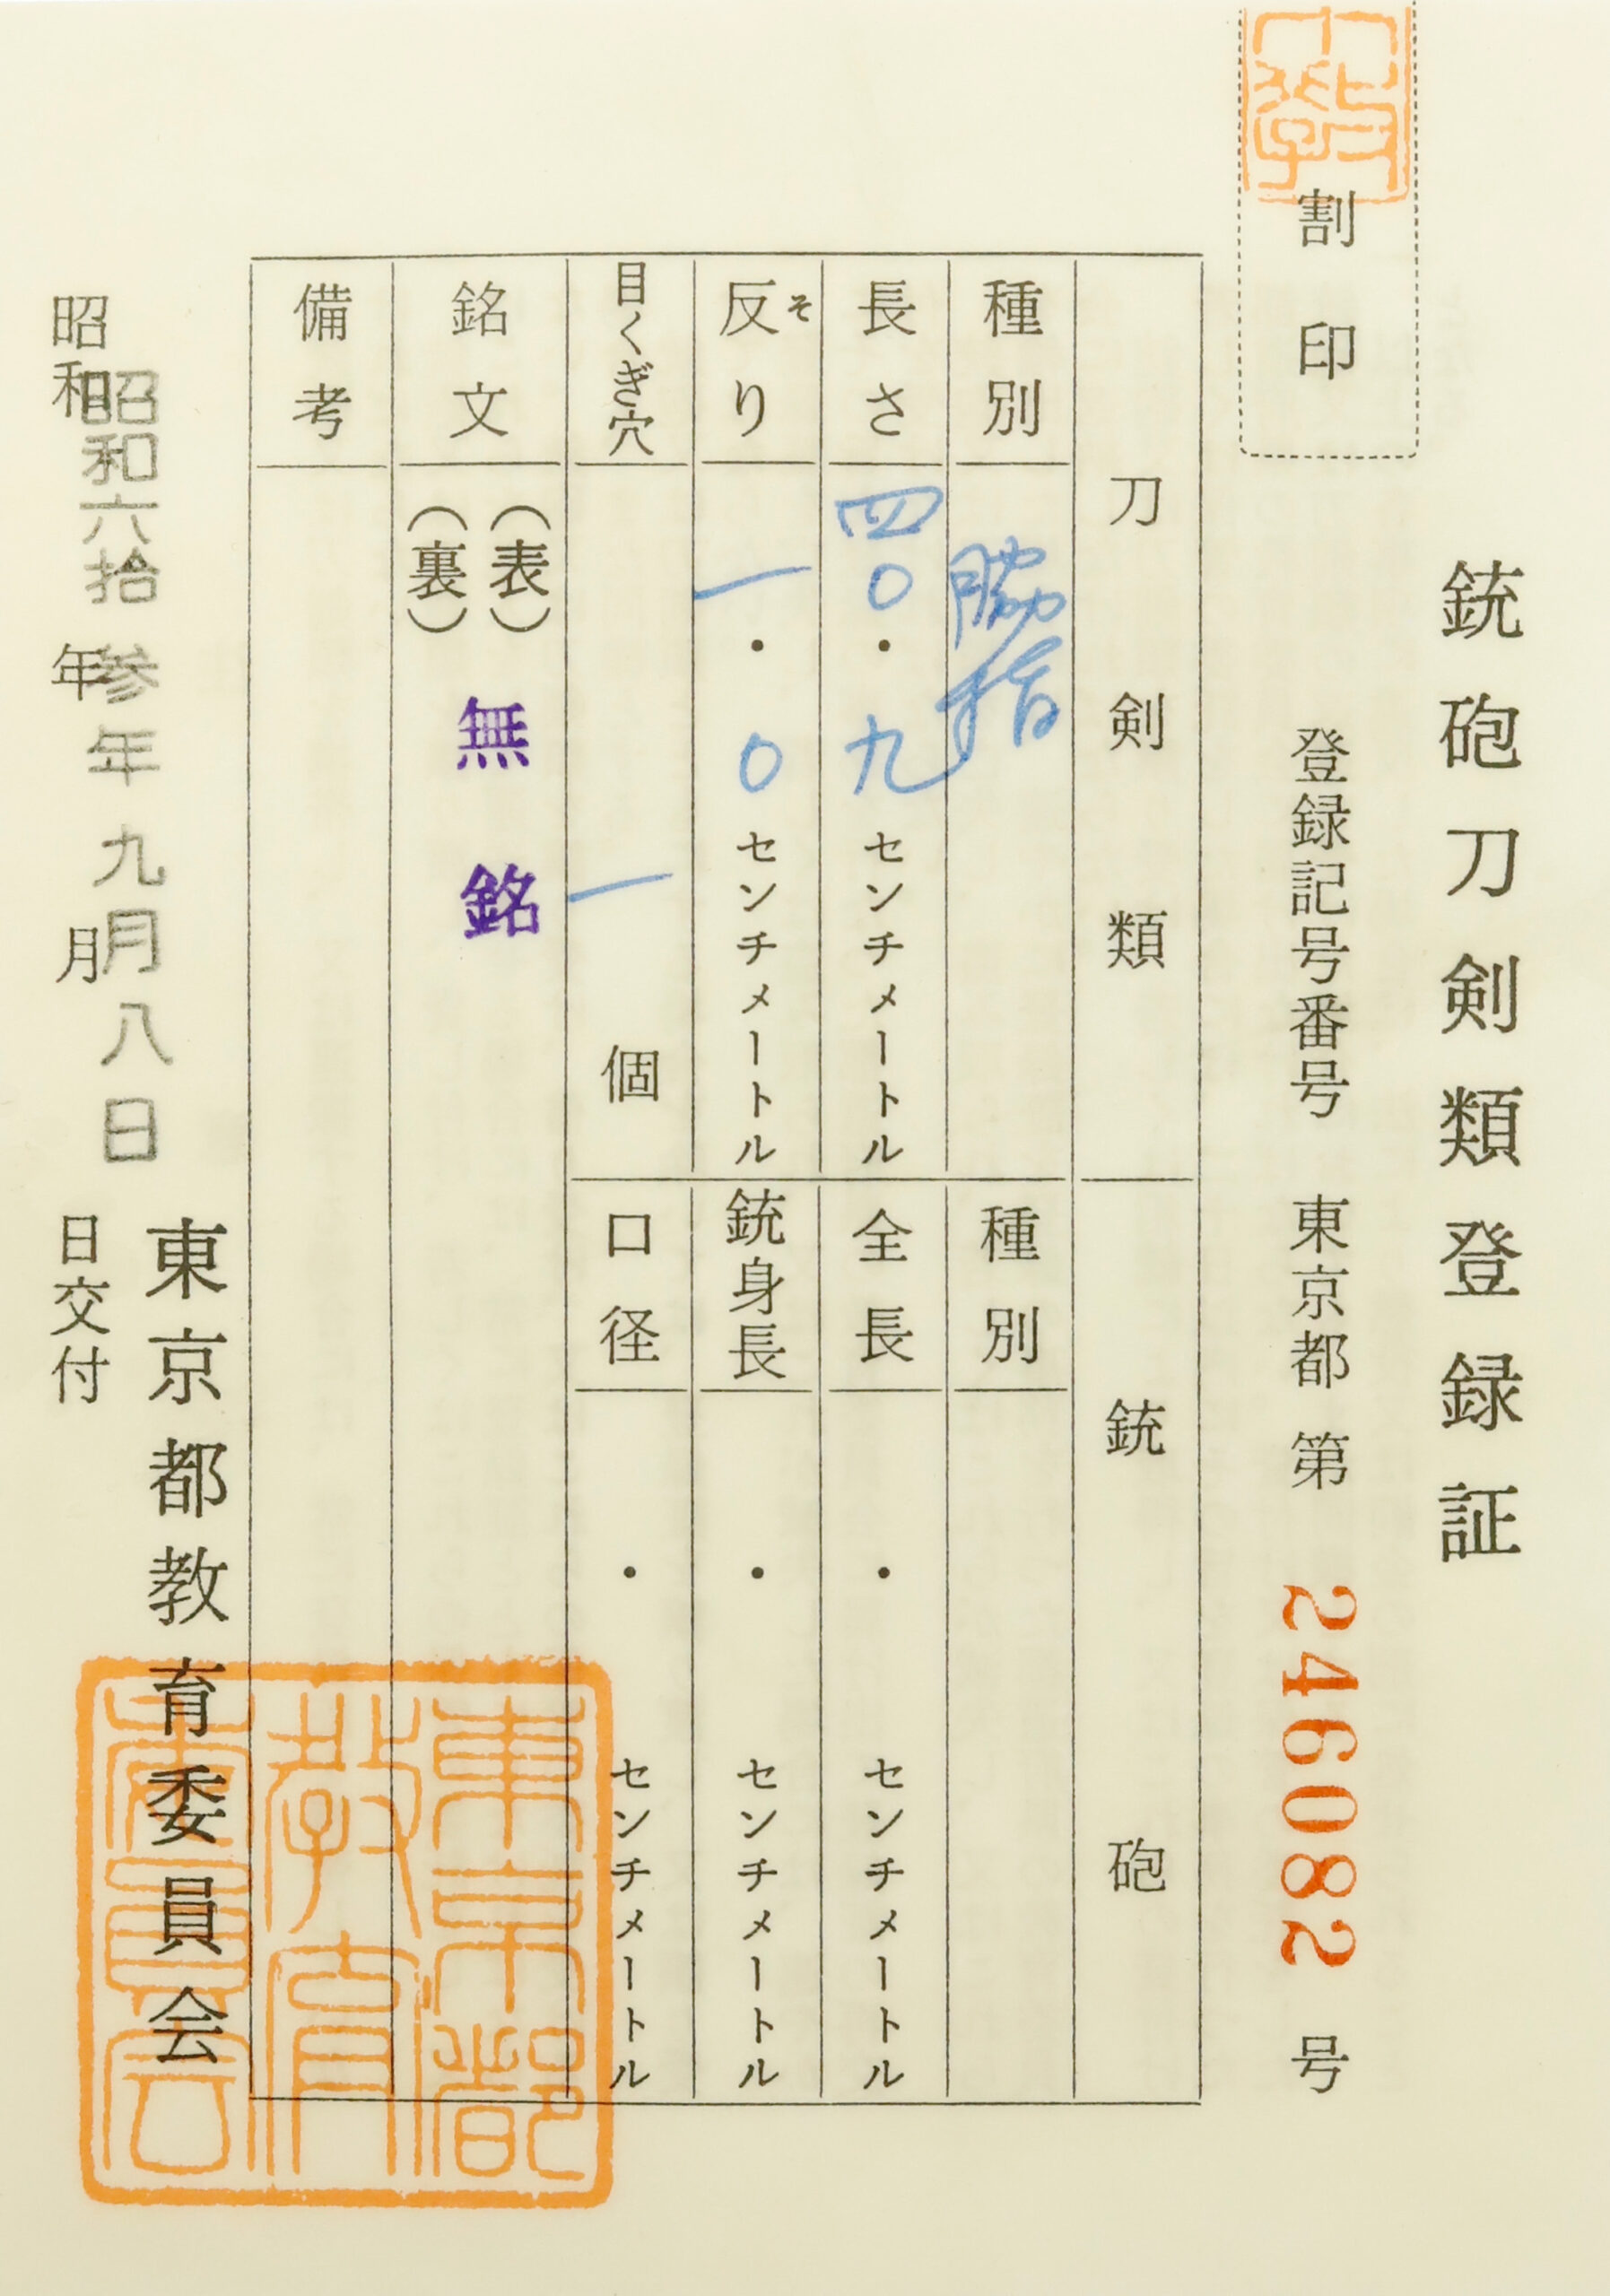 銃砲刀剣類登録証
割印
登録記号番号 東京都 第 246082 号
刀剣類
種別 脇指
長さ 四〇・九センチメートル
反り そ 一・〇センチメートル
目くぎ穴 一個
銃砲
種別
全長 ・ センチメートル
銃身長 ・ センチメートル
口径 ・ センチメートル
銘文 (表) (裏) 無銘
備考
昭和六拾参年九月八日
昭和 年 月 日交付
東京都教育委員会
東京都教育委員会